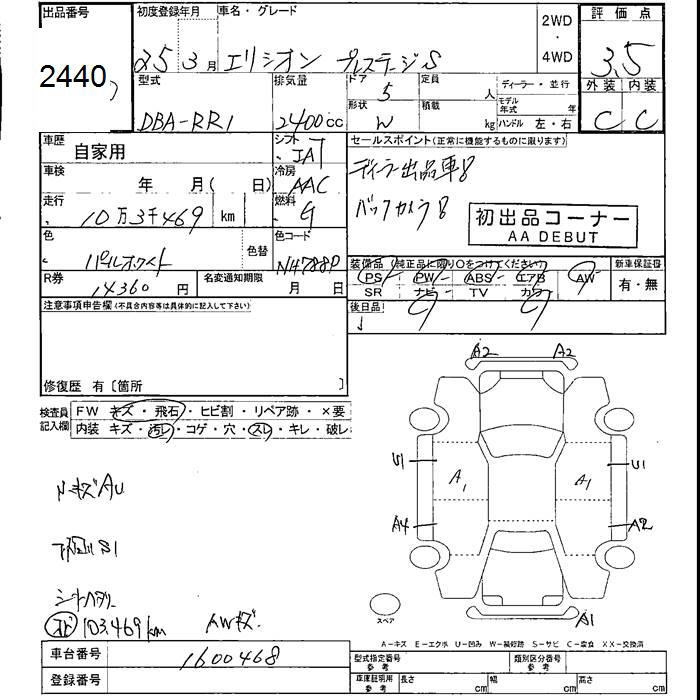 出品番号 初度登録年月 車名・グレード 2WD・4WD 評価点
2440 25 3月 エリシオン プレステージS 3.5
型式 排気量 ドア 定員 ディーラー・並行 外装 内装
DBA-RR1 2400cc 5 人 モデル年式 年 C C
形状 積載 kg ハンドル 左・右
W
車歴 シフト セールスポイント(正常に機能するものに限ります)
自家用 IAT ディーラー出品車8
車検 年 月( 日) 冷房 AAC
走行 10万3千469 km 燃料 G バックカメラ8
初出品コーナー
AA DEBUT
色 パールホワイト 色替 色コード NH788P
装備品(純正品に限り○をつけてください) 新車保証書
PS PW ABS エアB AW 有・無
SR ナビ TV カワ
R券 14360円 名変通知期限 月 日
後日品
注意事項申告欄(不具合内容等は具体的に記入して下さい)
修復歴 有〔箇所 〕
検査員記入欄 FW キズ・飛石・ヒビ割・リペア跡・×要
内装 キズ・汚レ・コゲ・穴・スレ・キレ・破レ
A2 A2
U1 A1 A1 U1
A4 A2
A1
スペア
103,469km AWキズ.
A-キズ E-エクボ U-凹み W-補修跡 S-サビ C-腐食 XX-交換済
車台番号 1600468
登録番号
型式指定番号 参考 類別区分番号 参考
車庫証明用 参考 長さ cm 幅 cm 高さ cm